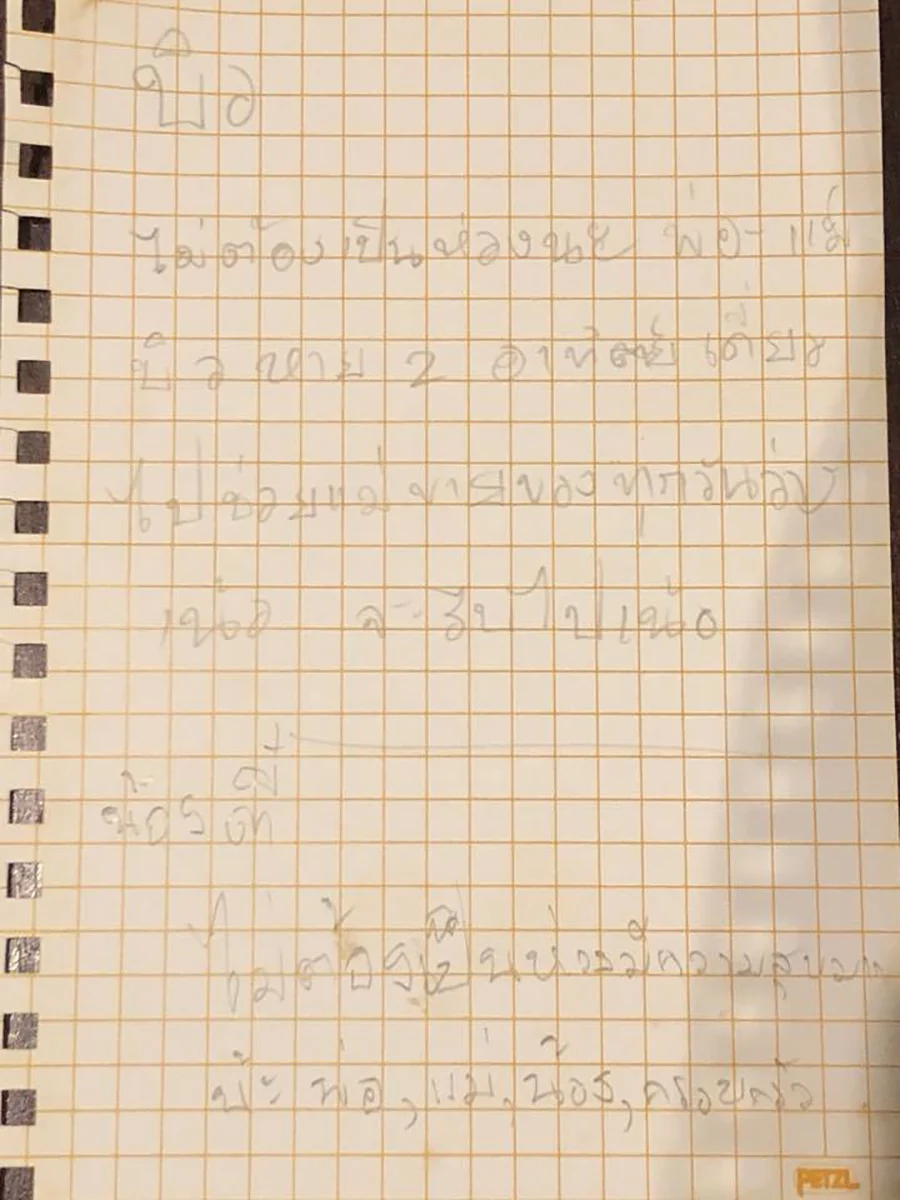 บิว
ไม่ต้องเป็นห่วงนะ พ่อ-แม่
บิวหาย 2 อาทิตย์เดี่ยว
ไปช่วยแม่ขายของทุกวัน
เน้อ จะรีบไปเน้อ
น้อง
ไม่ต้องเป็นห่วงมีความสุขมาก
น้ะ พ่อ, แม่, น้อง, ครอบครัว
PETZL